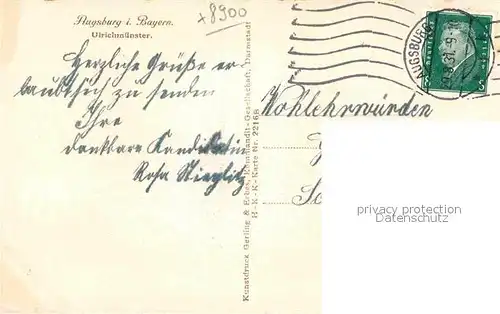 Augsburg i. Bayern.
Ulrichmünster.
+8900
Herzliche Grüße er-
laubt sich zu senden
Ihre
dankbare Kandidatin
Rosa Stieglitz
Kunstdruck Gerling & Erbes, Kommandit-Gesellschaft, Darmstadt
H-K-K-Karte Nr. 2216B
AUGSBURG
Hohlehrwürden
privacy protection
Datenschutz